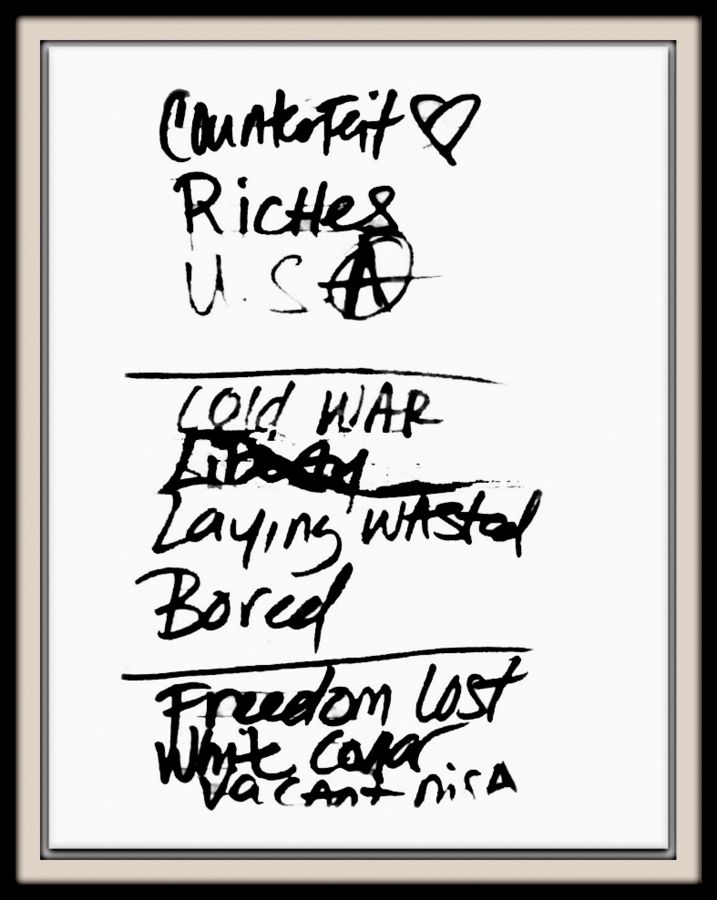 Counterfeit ♡
Riches
U.S Ⓐ
Cold WAR
Liberty
Laying wasted
Bored
Freedom Lost
White Collar
Vacant